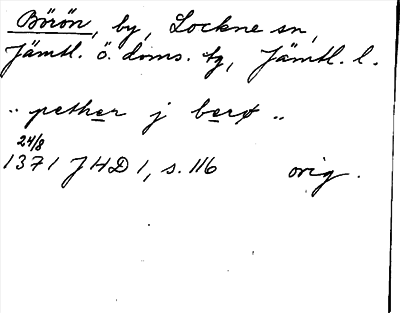 Börön, by, Lockne sn,
Jämtl. ö. doms. tg, Jämtl. l.
"pether j berø"
24/8
1371 JHD 1, s. 116 orig.